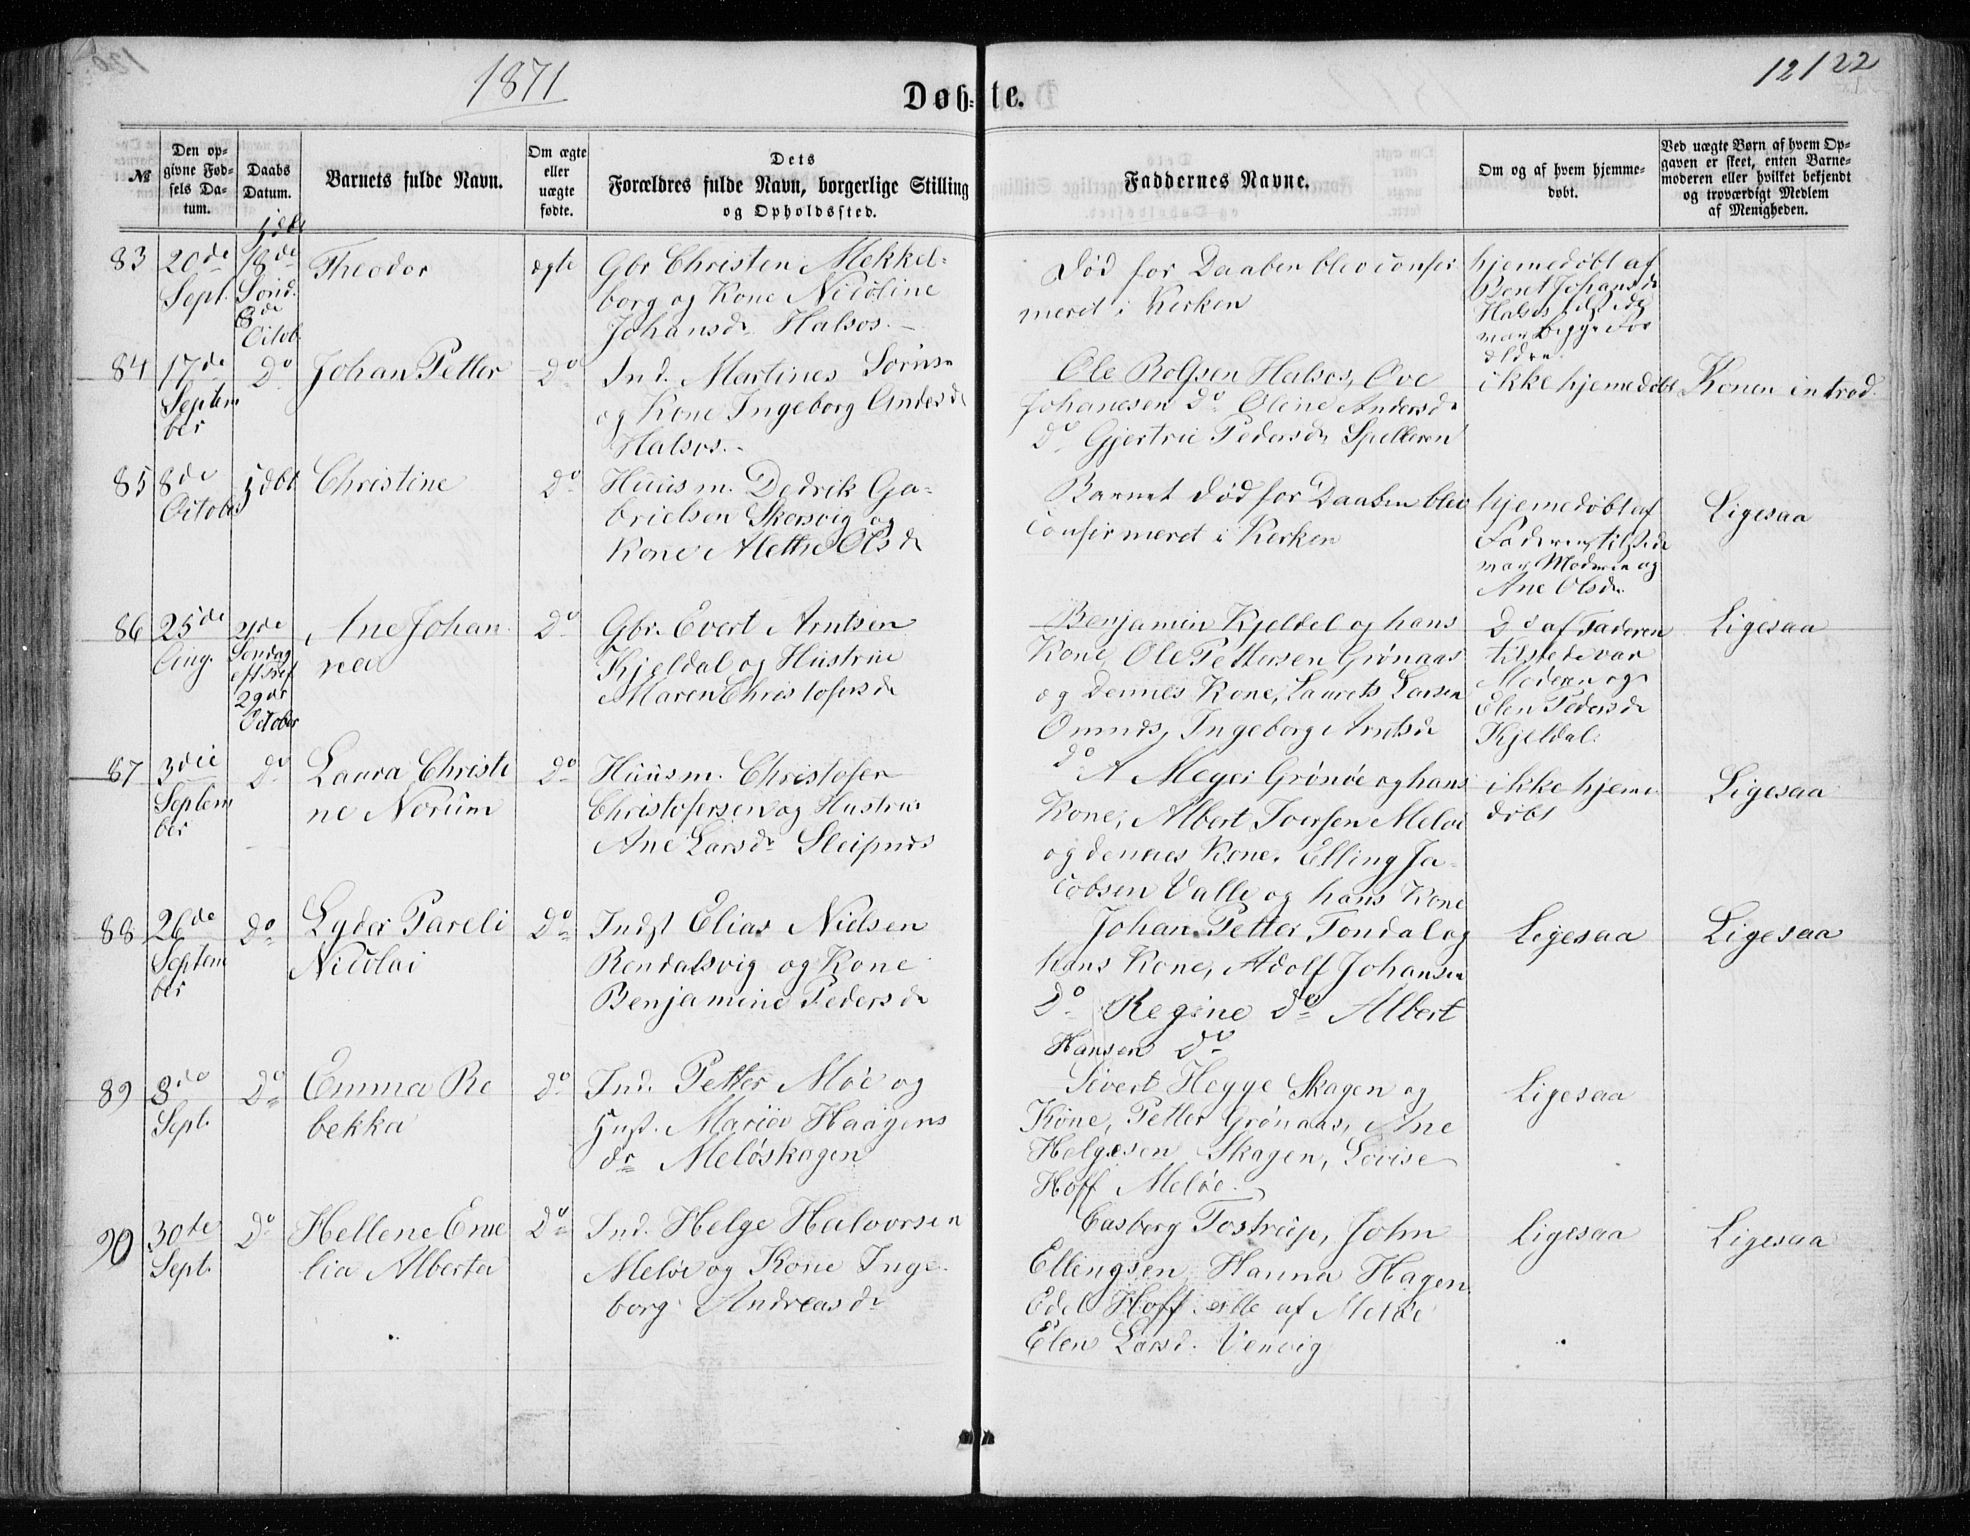 1871
Døb-te.
12122
№
Den op-
givne Fød-
sels Da-
tum.
Daabs
Datum.
Barnets fulde Navn.
Om ægte
eller
uægte
fødte.
Dets
Forældres fulde Navn, borgerlige Stilling
og Opholdssted.
Faddernes Navne.
Om og af hvem hjemme-
døbt.
Ved uægte Børn af hvem Op-
gaven er skeet, enten Barne-
moderen eller hvilket bekjendt
og troværdigt Medlem
af Menigheden.
83
20de
Sept.
18de
Sønd.
8de
Octob
Theodor
ægte
Gbr Christen Mekkel-
borg og Kone Nicoline
Johansdr Halsos.
Død før Daaben blev confir
meret i Kirken
hjemedøbt af
Beret Johansdr
Halsos tilstede
var begge For
ældre.
84
17de
Septem
ber
Do
Johan Petter
Do
Ind. Martines Sørns
og Kone Ingeborg Andersdr
Halsos.
Ole Rolfsen Halsos, Ove
Johanesen Do Oline Andersdr
Do Gjertrue Pedersdr Spilderen
ikke hjemedøbt
Konen introd.
85
8de
Octobe
Christine
Do
Huusm. Dedrik Ga-
brielsen Skorsvig og
Kone Alethe Olsdr
Barnet død for Daaben blev
confirmeret i Kirken
hjemedøbt af
Faderen, tilstede
var Moderen og
Ane Olsdr.
Ligesaa
86
25de
Aug.
21de
Søndag
eft Tref
29de
October
Ane Johan
nea
Do
Gbr. Evert Arntsen
Kjeldal og Hustrue
Maren Christofersdr
Benjamin Kjeldal og hans
Kone, Ole Pettersen Grønaas
og dennes Kone, Laurits Larsen
Ornnes, Ingeborg Arntsdr
Do
Do af Faderen
tilstede var
Moderen og
Elen Pedersdr
Kjeldal.
Ligesaa
87
3die
Septem
ber
Do
Laura Christi
ne Norum
Do
Huusm. Christofer
Christofersen og Hustrue
Ane Larsdr Sleipnes
A Meyer Grønøe og hans
Kone, Albert Iversen Meløe
og dennes Kone. Elling Ja-
cobsen Valle og hans Kone
ikke hjeme
døbt
Ligesaa
88
26de
Septem
ber
Do
Lyder Pareli
Nicolai
Do
Indst Elias Nielsen
Rendalsvig og Kone
Benjamine Pedersdr
Johan Petter Tondal og
hans Kone, Adolf Johansen
Do Regine Do Albert
Hansen Do
Ligesaa
Ligesaa
89
8de
Sept.
Do
Emma Re
bekka
Do
Ind. Petter Moe og
Hust. Maria Haagens
dr Meløskagen
Sivert Hegge Skagen og
Kone, Petter Grønaas, Ane
Helgesen Skagen, Lovise
Hoff Meløe.
Ligesaa
90
30te
Sept.
Do
Hellene Eme
lia Alberta
Do
Ind. Helge Halvorsen
Meløe og Kone Inge-
borg Andreasdr
Casberg Tostrup, John
Ellingsen, Hanna Hagen
Edel Hoff. alle af Meløe
Elen Larsd. Venvig
Ligesaa
Ligesaa